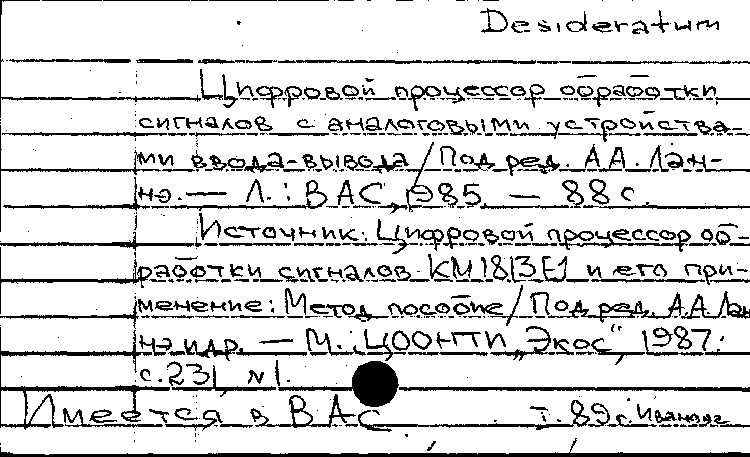 Desideratum
Цифровой процессор обработки
сигналов с аналоговыми устройства-
ми ввода-вывода / Под ред. А.А. Лан-
нэ. — Л.: ВАС, 1985. — 88 с.
Источник: Цифровой процессор об-
работки сигналов КМ1813ВЕ1 и его при-
менение: Метод. пособие / Под ред. А.А. Лан
нэ и др. — М.: ЦООНТИ „Экос“, 1987.
с. 231, №1.
Имеется в ВАС